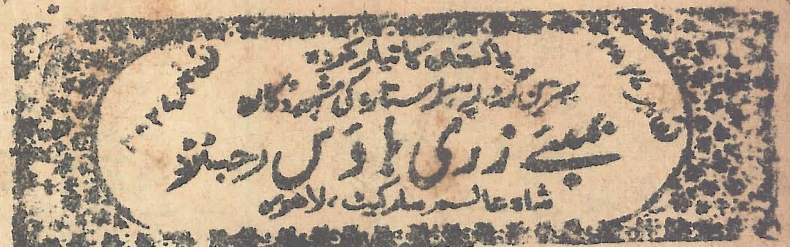 پاکستان کا تیار کردہ
بہترین گوٹہ سلمہ ستارہ کی مشہور دکان
بمبئے زری ہاؤس رجسٹرڈ
شاہ عالمر مارکیٹ، لاہور